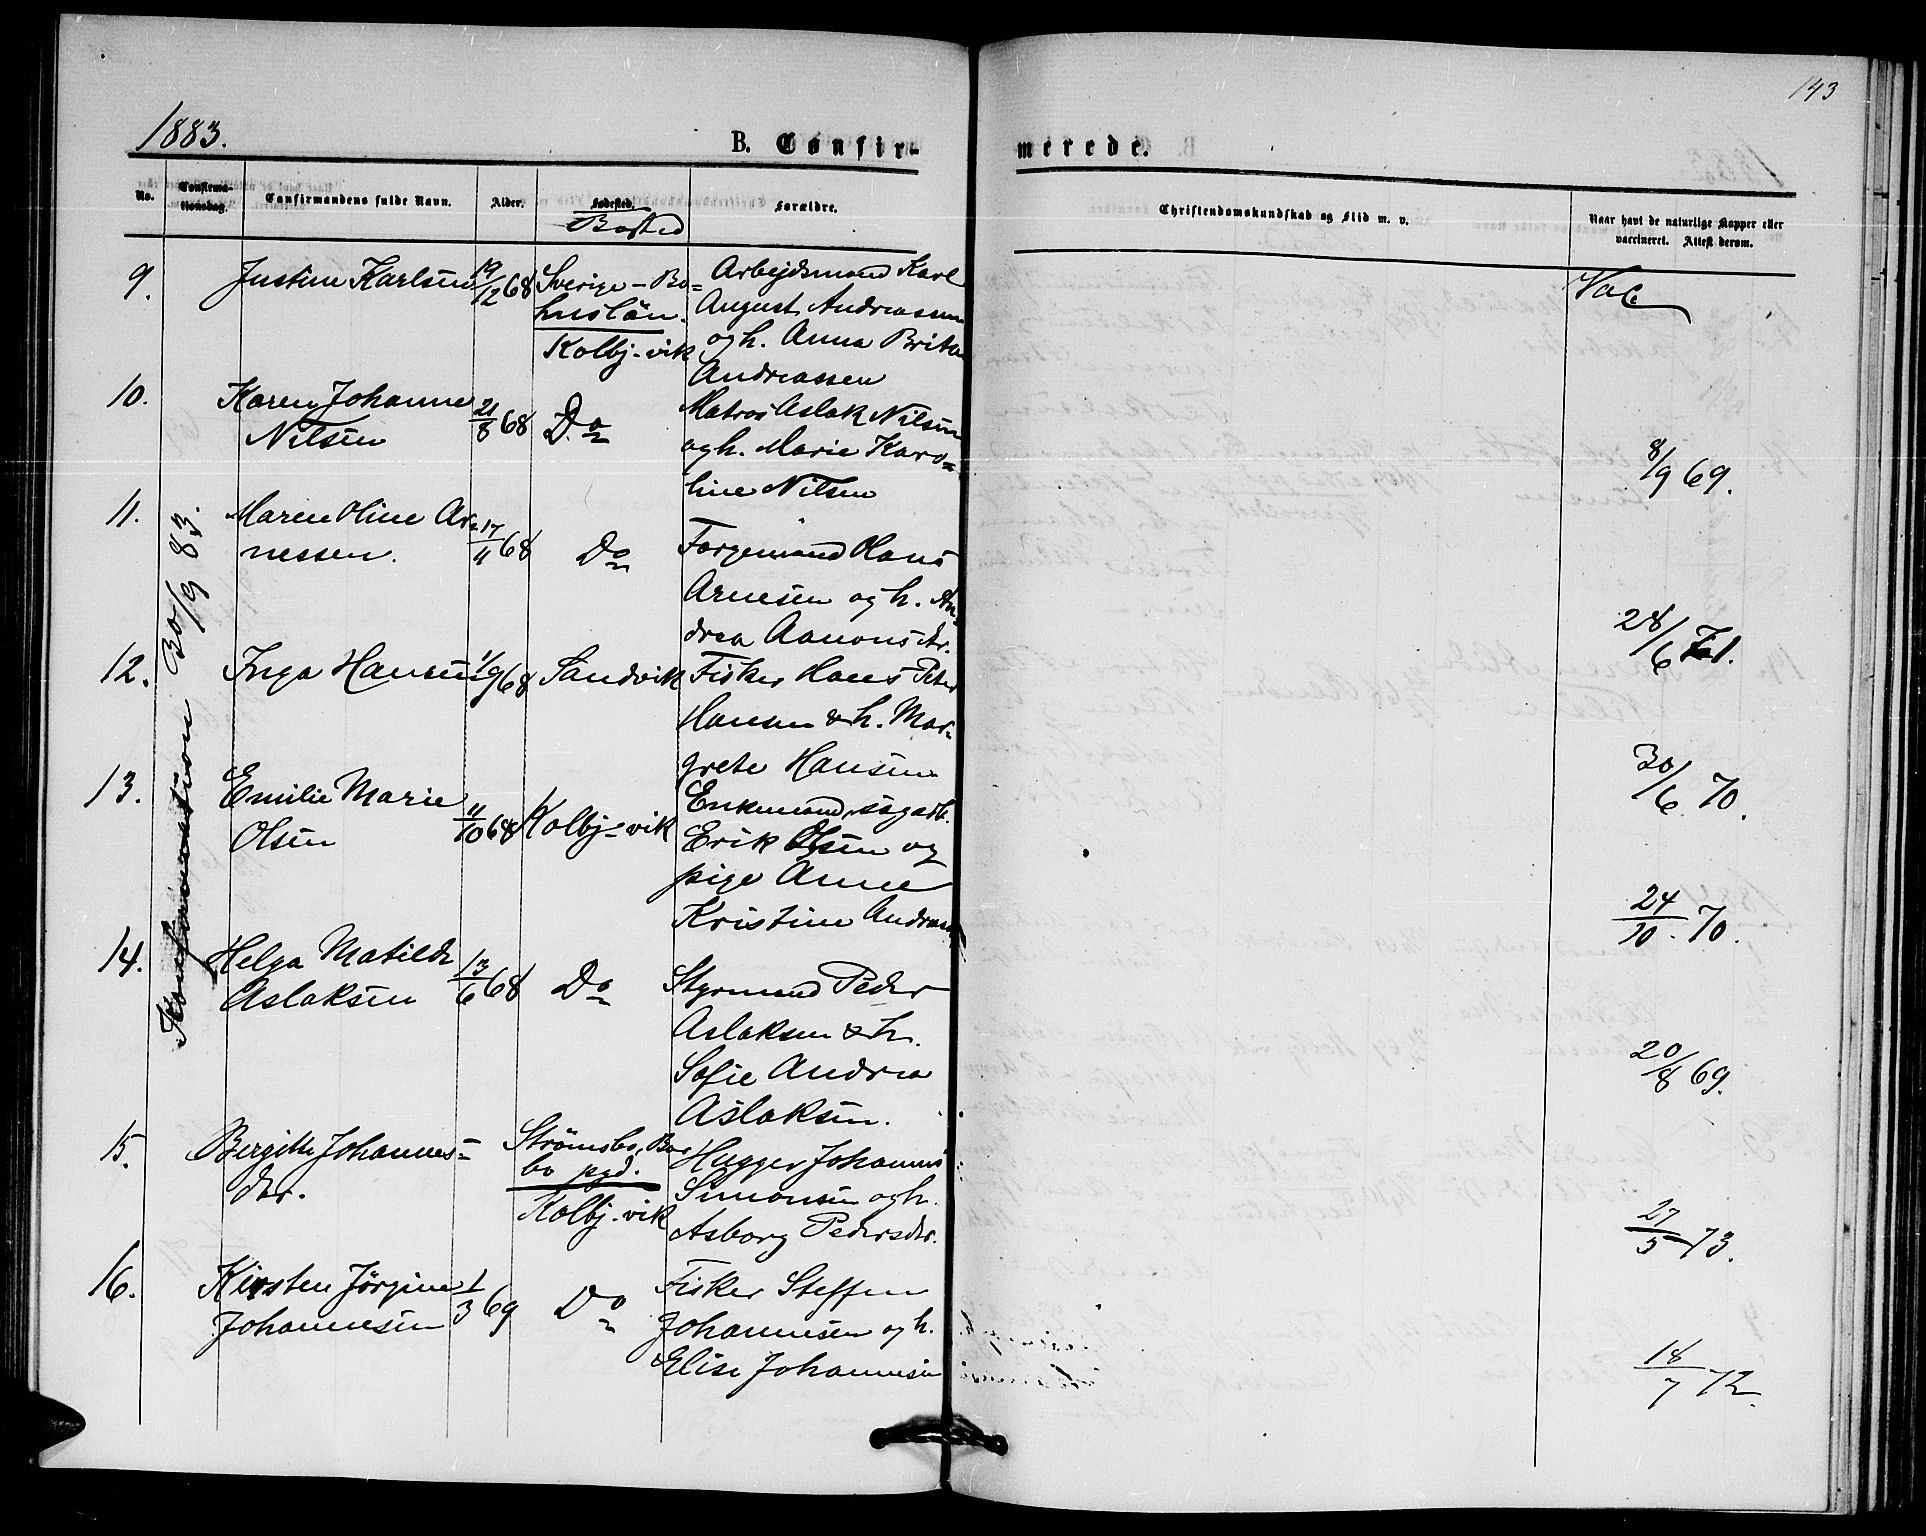 143
1883.
B. Confir-
merede.
No.
Confirma-
tionsdag.
Confirmandens fulde Navn.
Alder.
Fødested.
Bosted
Forældre.
Christendomskundskab og Flid m. v.
Naar havt de naturlige Kopper eller
vaccineret. Attest derom.
Konfirmation 30/9 83.
9.
Justine Karlsen
19/12 68
Sverige - Bo-
huslän.
Kolbj-vik
Arbejdsmand Karl
August Andreassen
og h. Anna Brita
Andreassen
Vac
10.
Karen Johanne
Nilsen
21/8 68
Do
Matros Aslak Nilsen
og h. Marie Karo-
line Nilsen
8/9 69.
11.
Maren Oline Ar-
nessen.
17/11 68
Do
Forgemand Hans
Arnesen og h. An-
drea Aanonsdr.
28/6 71.
12.
Inga Hansen
1/9 68
Sandvik
Fisker Hans Peter
Hansen & h. Mar-
grete Hansen
30/6 70.
13.
Emilie Marie
Olsen
11/10 68
Kolbj-vik
Enkemand, sagarb.
Erik Olsen og
pige Anne
Kristine Andreas
24/10. 70.
14.
Helga Matilde
Aslaksen
13/6 68
Do
Styrmand Peder
Aslaksen & h.
Sofie Andrea
Aslaksen.
20/8 69.
15.
Bergitte Johannes-
dtr.
Strømsbo, Bar-
bo pgd.
Kolbj-vik
Hugger Johannes
Simonsen og h.
Asborg Pedersdr.
27/5 73.
16.
Kirsten Jørgine
Johannesen
1/3 69
Do
Fisker Steffen
Johannesen og h.
Elise Johannesen
18/7 72.